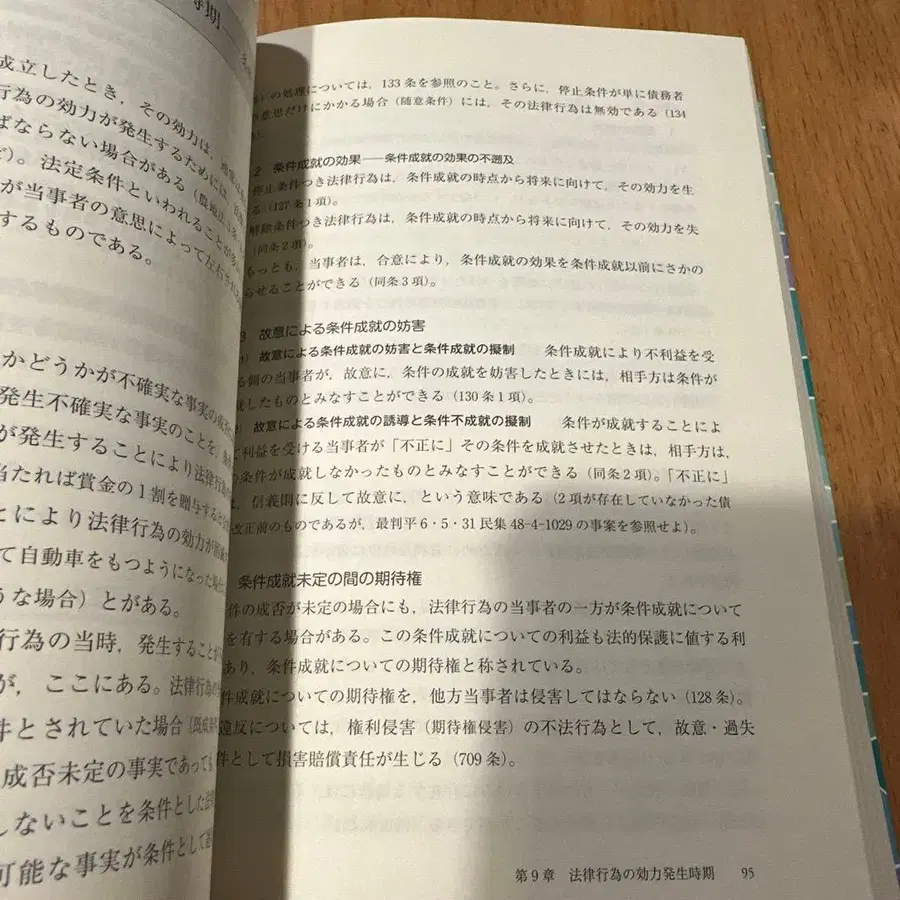 期
成立したとき，その効力は，
行為の効力が発生するためには，
ばならない場合がある
ど）。法定条件といわれることが
が当事者の意思によって左右され
するものである。
かどうかが不確実な事実の成否
発生不確実な事実のことを，
が発生することにより法律行為
当たれば賞金の1割を贈与する
とにより法律行為の効力が
て自動車をもつようになった
うな場合）とがある。
行為の当時，発生することが
が，ここにある。法律行為の
件とされていた場合（既成条件
成否未定の事実であっても
しないことを条件とした法
可能な事実が条件として
の処理については，133条を参照のこと。さらに，停止条件が単に債務者
の意思だけにかかる場合（随意条件）には，その法律行為は無効である（134
2 条件成就の効果──条件成就の効果の不遡及
停止条件つき法律行為は，条件成就の時点から将来に向けて，その効力を生
る（127条1項）。
解除条件つき法律行為は，条件成就の時点から将来に向けて，その効力を失
（同条2項）。
もっとも，当事者は，合意により，条件成就の効果を条件成就以前にさかの
らせることができる（同条3項）。
3 故意による条件成就の妨害
故意による条件成就の妨害と条件成就の擬制 条件成就により不利益を受
る側の当事者が，故意に，条件の成就を妨害したときには，相手方は条件が
就したものとみなすことができる（130条1項）。
故意による条件成就の誘導と条件不成就の擬制 条件が成就することによ
て利益を受ける当事者が「不正に」その条件を成就させたときは，相手方は，
の条件が成就しなかったものとみなすことができる（同条2項）。「不正に」
，信義則に反して故意に，という意味である（2項が存在していなかった債
改正前のものであるが，最判平6・5・31民集48-4-1029の事案を参照せよ）。
条件成就未定の間の期待権
件の成否が未定の場合にも，法律行為の当事者の一方が条件成就について
を有する場合がある。この条件成就についての利益も法的保護に値する利
あり，条件成就についての期待権と称されている。
件成就についての期待権を，他方当事者は侵害してはならない（128条）。
違反については，権利侵害（期待権侵害）の不法行為として，故意・過失
件として損害賠償責任が生じる（709条）。
第9章 法律行為の効力発生時期 95